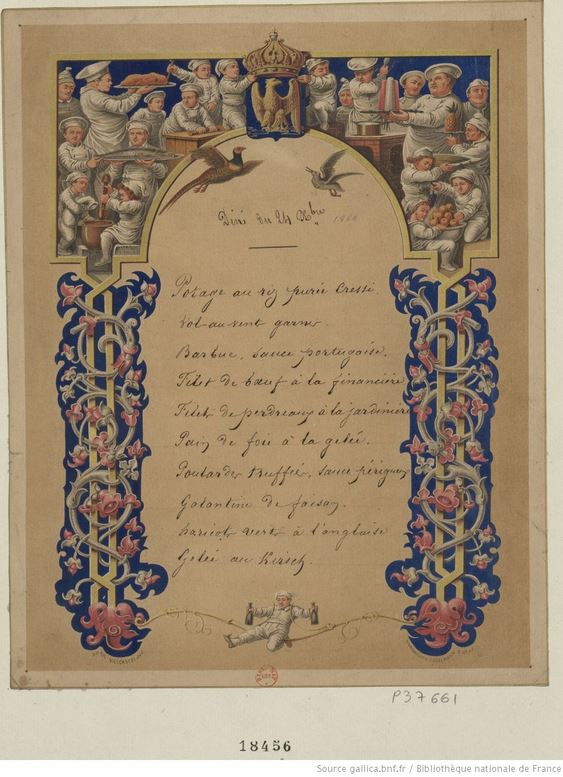 Dîné du 24 Xbre 1860
Potage au riz purée Cressi.
Vol-au-vent garni.
Barbue, sauce portugaise.
Filet de bœuf à la financière
Filets de perdreaux à la jardinière
Pain de foie à la gelée.
Poularde truffée, sauce périgueux
Galantine de faisan.
haricots verts à l'anglaise
Gelée au Kirsch.
P37661
18456
Source gallica.bnf.fr / Bibliothèque nationale de France